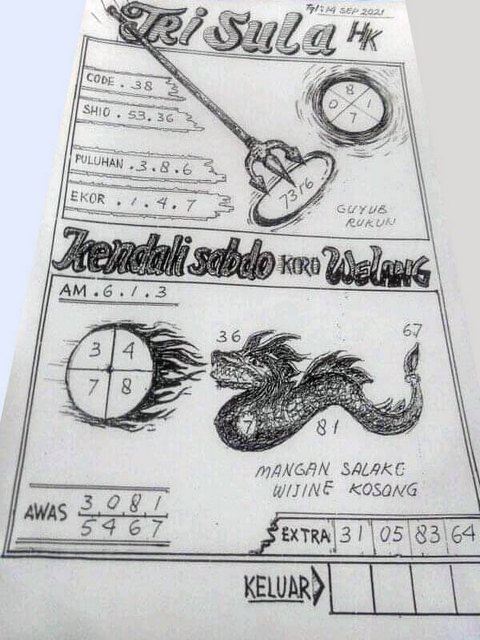 Tgl: 14 SEP 2021
TRI SULA HK
CODE . 38
SHIO . 53.36
PULUHAN . 3 . 8 . 6
EKOR . 1 . 4 . 7
8
0 1
7
7376
GUYUB
RUKUN
Kendali sabdo KORO WELANG
AM . 6 . 1 . 3
3 4
7 8
36
67
7
81
MANGAN SALAKE
WIJINE KOSONG
AWAS 3 0 8 1
5 4 6 7
EXTRA 31 05 83 64
KELUAR